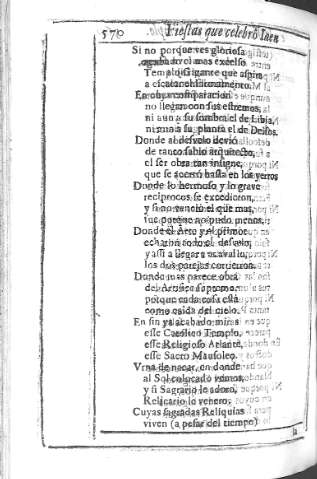 570 Fiestas que celebró Iaen
Si no porque ves gloriosa
acabado el mas excelso
Templo Gigante que aspira
a escalar
En cuya comparacion
no llegan con sus estremos,
ni aun a su sombra el de Libia,
ni mas a su planta el de Delfos.
Donde al desvelo deviò
de tanto sabio arquitecto,
el ser obra tan insigne,
que se acertò hasta en los yerros
Donde lo hermoso y lo grave
reciprocos se excedieron,
y si no venciò el que mas,
fue porque no pudo menos.
Donde el Arte y el primor
echaron todo el desvelo,
y assi a llegar
los dos parejas corrieron.
Donde mas parece obra
del Artifice supremo,
porque cada cosa està
como caida del cielo.
En fin ya acabado miras
esse Catolico Templo,
esse Religioso Atlante,
esse Sacro Mausoleo.
Vrna de nacar, en donde
al Sol colocado vemos,
y si Sagrario le adoro,
Relicario le venero.
Cuyas sagradas Reliquias
viven (a pesar del tiempo)